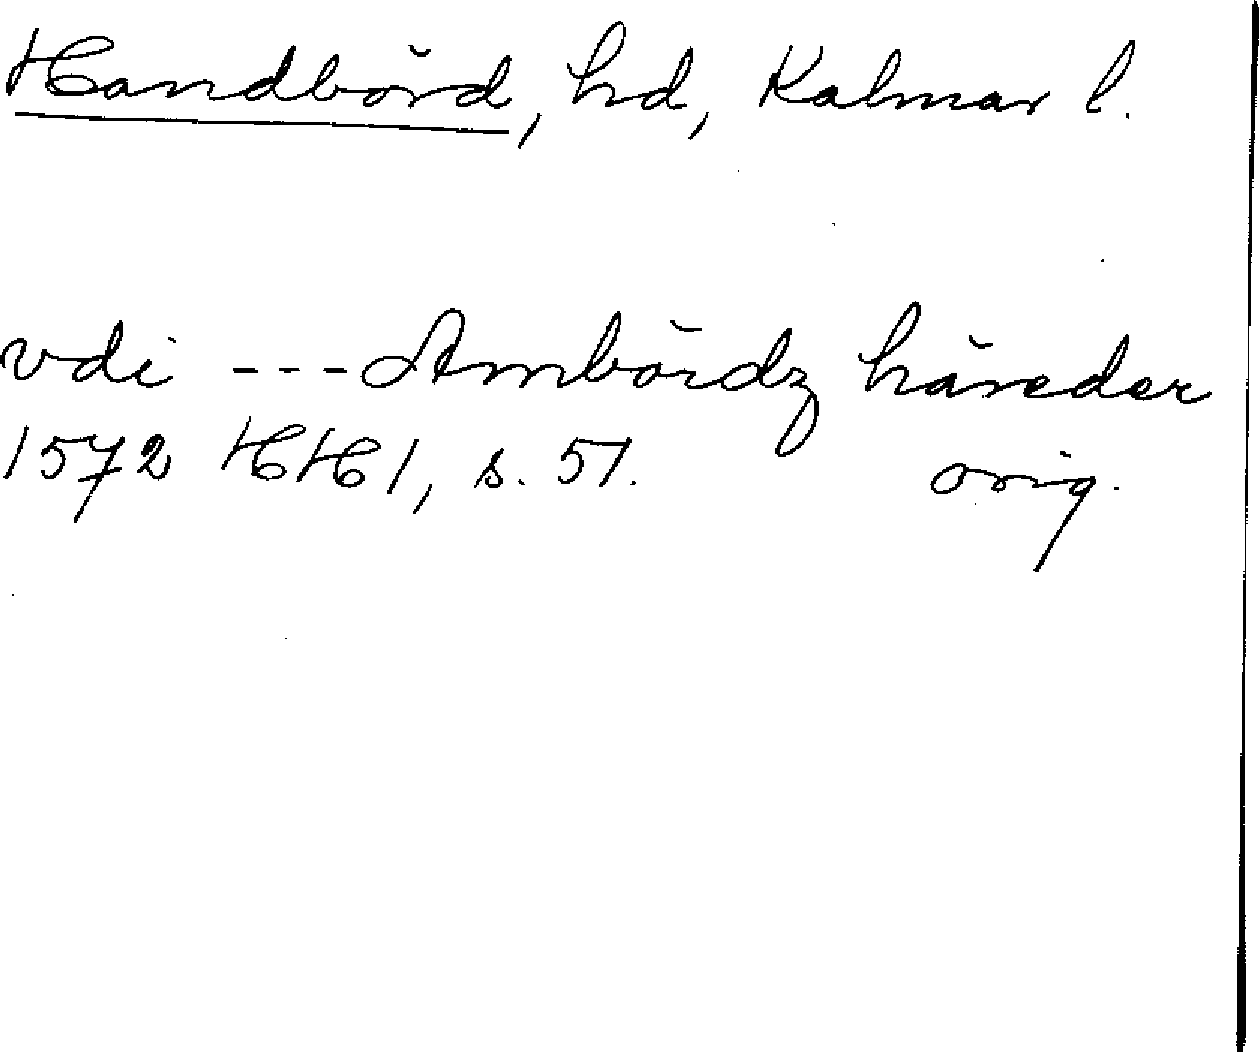 Handbörd, hd, Kalmar l.
vdi --- Ambördz häreder
1572 HH 1, s. 51. orig.